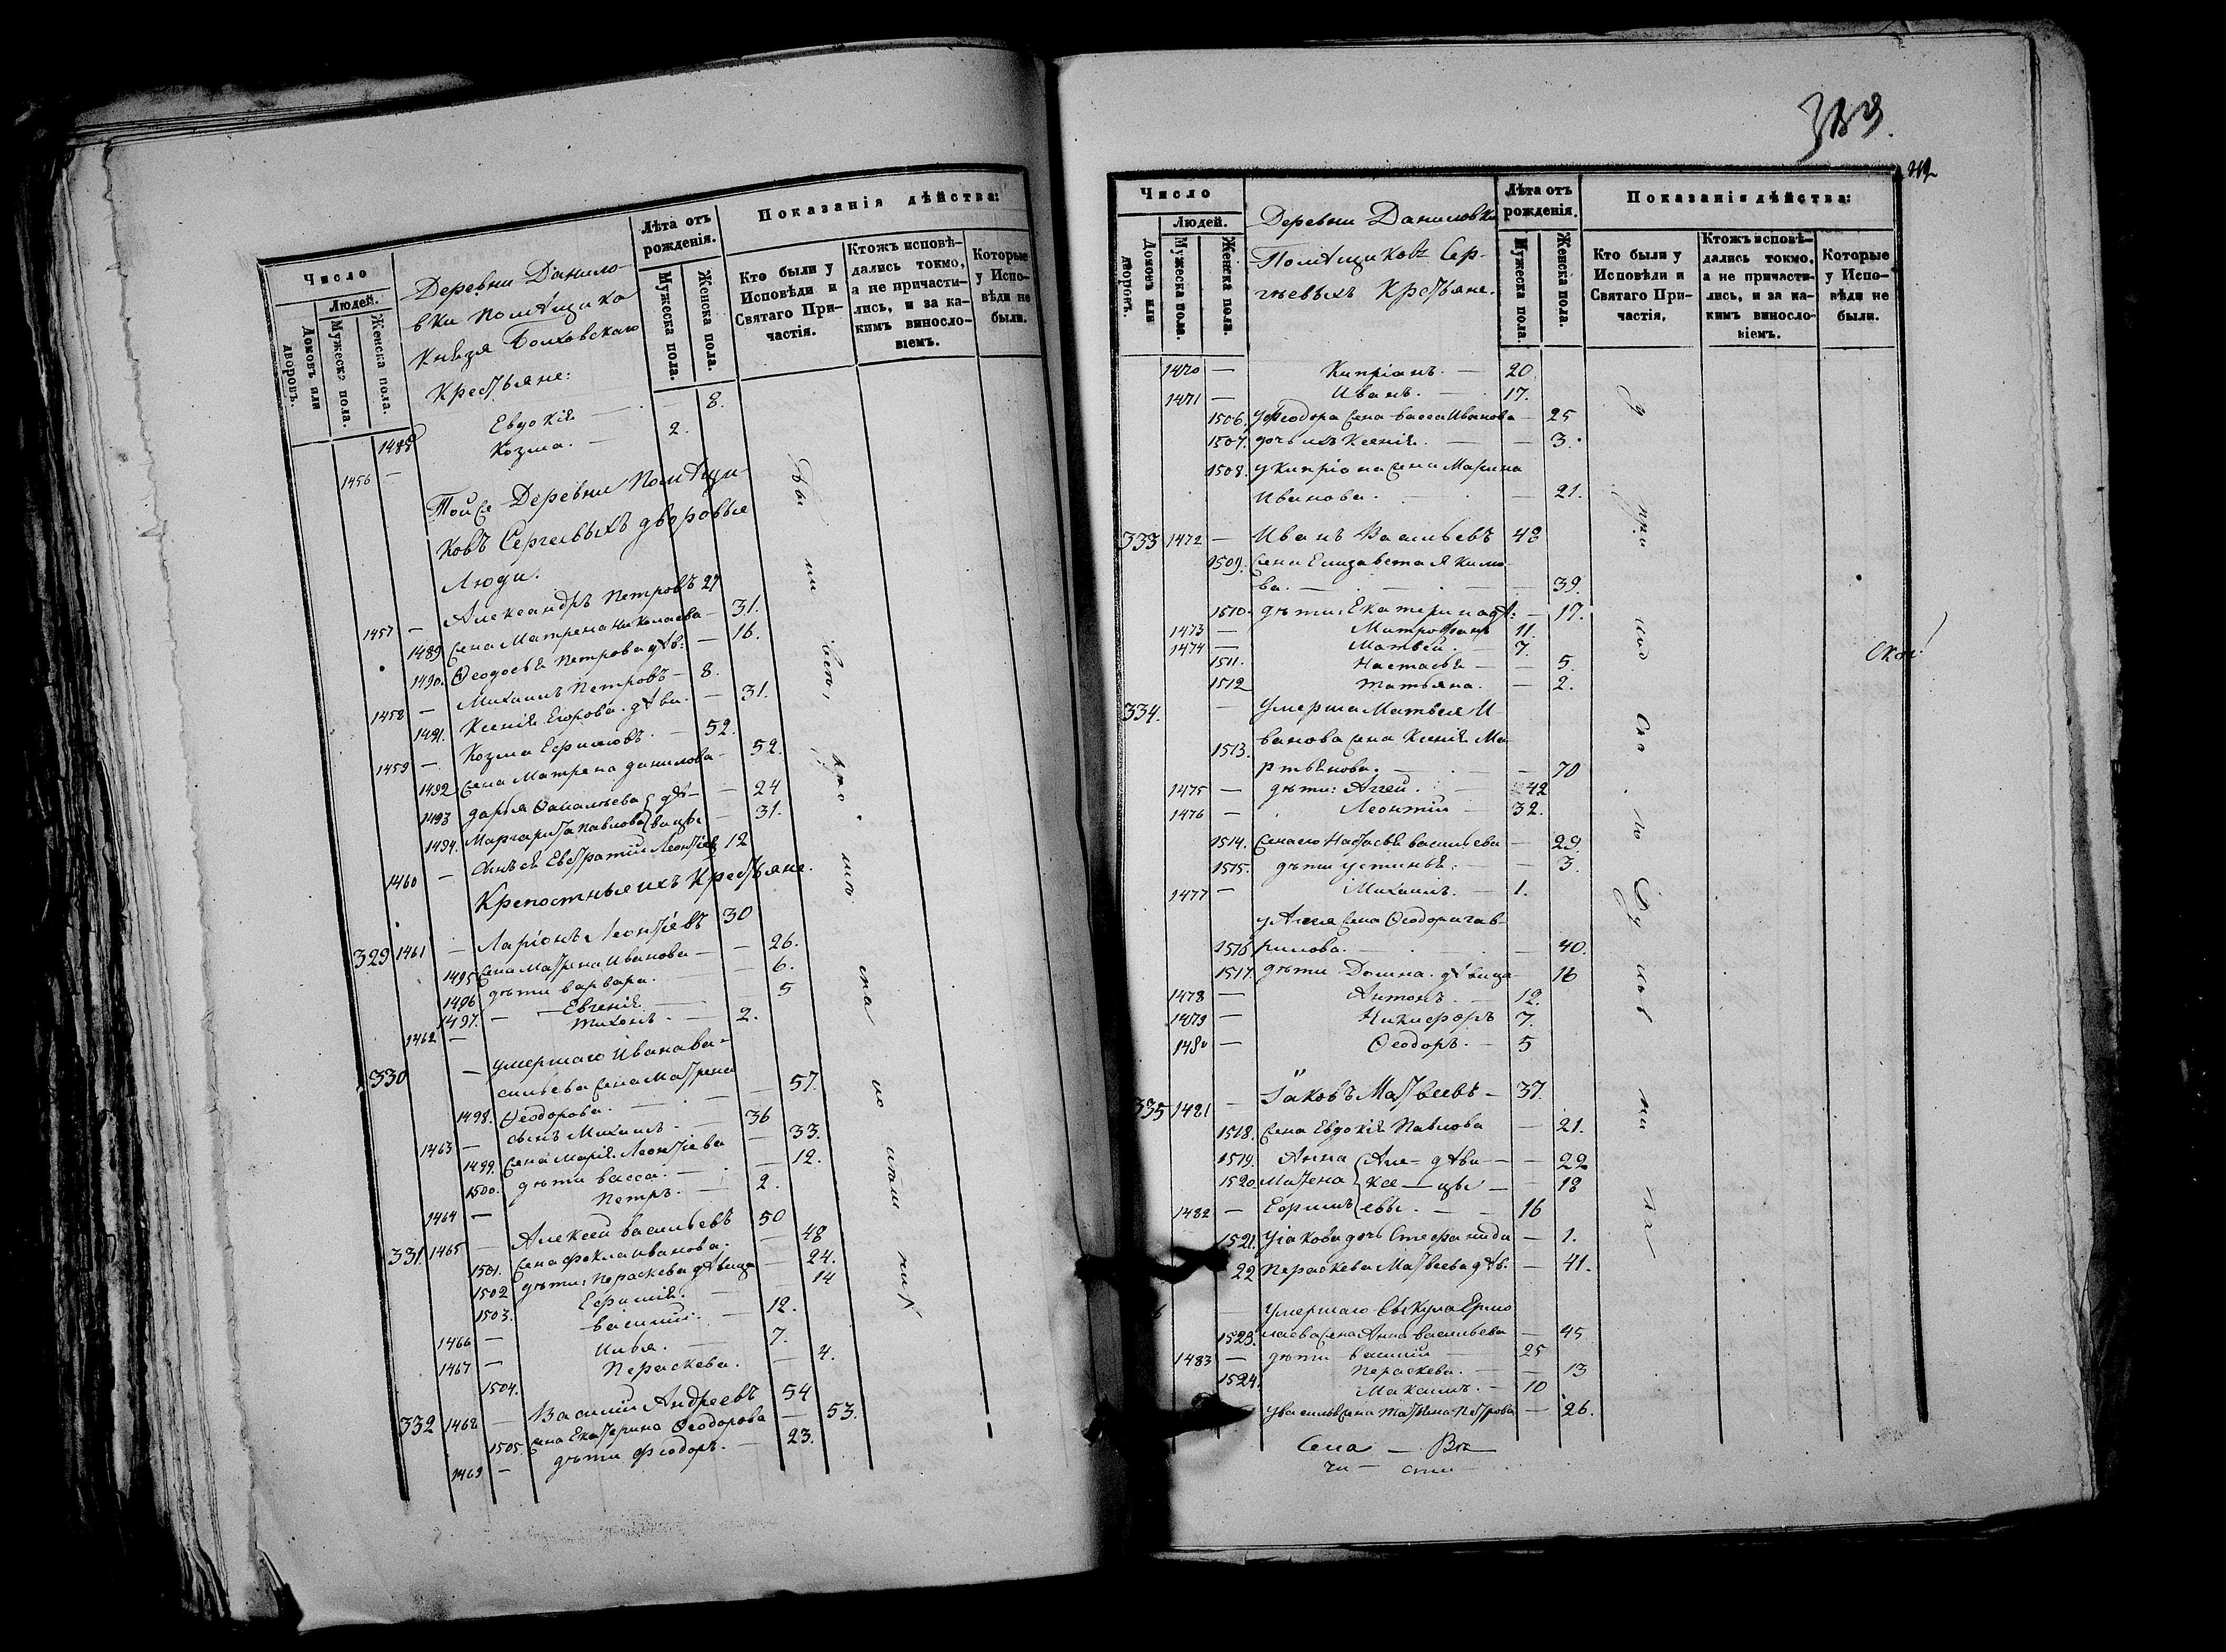 Число
Людей.
Домовъ или дворовъ.
Мужеска пола.
Женска пола.
Деревни Данило-
вки помѣщика
Князя Болховскаго
Крестьяне:
Лѣта отъ рожденія.
Мужеска пола.
Женска пола.
Показанія дѣйства:
Кто были у Исповѣди и Святаго При-частія.
Ктожъ исповѣ-дались токмо, а не причасти-лись, и за ка-кимъ винословіемъ.
Которые у Испо-вѣди не были.
1488 Евдокія — 8.
1456 — Козма. — 2.
Той же Деревни Помѣщи-
ковъ Сергеевыхъ дворовые
Люди.
1457 — Александръ Петровъ 27
1489 Жена Матрена Николаева — 31.
1490. Ѳеодосья Петрова дѣв: — 16.
1458 — Михаилъ Петровъ — 8.
1491. Ксенія Егорова. дѣви. — 31.
1459 — Козма Ефимовъ. — 52.
1492 Жена Матрена Данилова — 52.
1493 Дарья дѣ — 24
1494. Маргарита Павлова вицы — 31.
1460 — Евстратій Леонтіев 12
Крепостныя ихъ Крестьяне.
329 1461 — Ларіонъ Леонтіевъ 30
1495 Жена Матрена Иванова — 26.
1496 дѣти Варвара. — 6.
1497. — Евгенія — 5
1462 — Тихонъ. — 2.
330 — Умершаго Ивана Ва-
сильева Жена Матрена
1498. Ѳеодорова. — 57.
1463 — сынъ Михаилъ. — 36
1499. Жена Марія Леонтіева — 33.
1500. дѣти Васса. — 12.
1464 — Петръ. — 2.
331. 1465 — Алексей Васильевъ 50
1501. Жена Фекла Иванова. — 48
1502 дѣти: Параскева дѣвица — 24.
1503. Ефимія. — 14
1466 — Василій. — 12.
1467 — Илья. — 7.
1504. Параскева. — 4.
332 1468 — Василій Андреевъ 54
1505. Жена Екатерина Ѳеодорова — 53.
1469 — дѣти Феодоръ. — 23.
389.
Число
Людей.
Домовъ или дворовъ.
Мужеска пола.
Женска пола.
Деревни Даниловки
Помѣщиковъ Сер-
гѣевыхъ Крестьяне.
Лѣта отъ рожденія.
Мужеска пола.
Женска пола.
Показанія дѣйства:
Кто были у Исповѣди и Святаго При-частія.
Ктожъ исповѣ-дались токмо, а не причасти-лись, и за ка-кимъ винословіемъ.
Которые у Испо-вѣди не были.
1470 — Кипріанъ. — 20
1471 — Иванъ. — 17.
1506. у Феодора Жена Васса Иванова — 25
1507. дочь ихъ Ксенія. — 3.
1508. у Кипріана Жена Марина
Иванова. — 21.
333 1472 — Иванъ Васильевъ 48
1509. Жена Елизавета Якимо-
ва. — 39.
1510. дѣти: Екатерина дѣ: — 17.
1473 — Митрофанъ 11.
1474 — Матвей. — 7.
1511. Настасья — 5.
1512 Татьяна. — 2.
334. — Умерша Матвея И-
ванова Жена Ксенія Ма-
1513. ртынова. — 70
1475 — дѣти: Аггей. — 42
1476 — Леонтій — 32.
1514. Жена его Настасья Васильева — 29.
1515. дѣти Устинья. — 3.
1477 — Михаилъ. — 1.
у Аггея Жена Ѳеодора Гав-
1516 рилова. — 40.
1517. дѣти Домна. дѣвица 16
1478 — Антонъ. — 12.
1479 — Никифоръ 7.
1480 — Ѳеодоръ. — 5
335 1481 — Іаковъ Матвеевъ — 37.
1518. Жена Евдокія Павлова — 21.
1519. Анна Але- дѣви — 22
1520. Матрена ксе — цы — 18
1482 — Ефимъ евы. — 16
1521. у Іакова дочь Стефанида — 1.
22 Параскева Матвеева дѣв. — 41.
6 — Умершаго Ермо
1523. лаева Жена Анна Васильева — 45
1483 — дѣти Василій — 25
1524. Параскева. — 13
Максимъ. — 10
у Василья Жена Татьяна Петрова — 26.